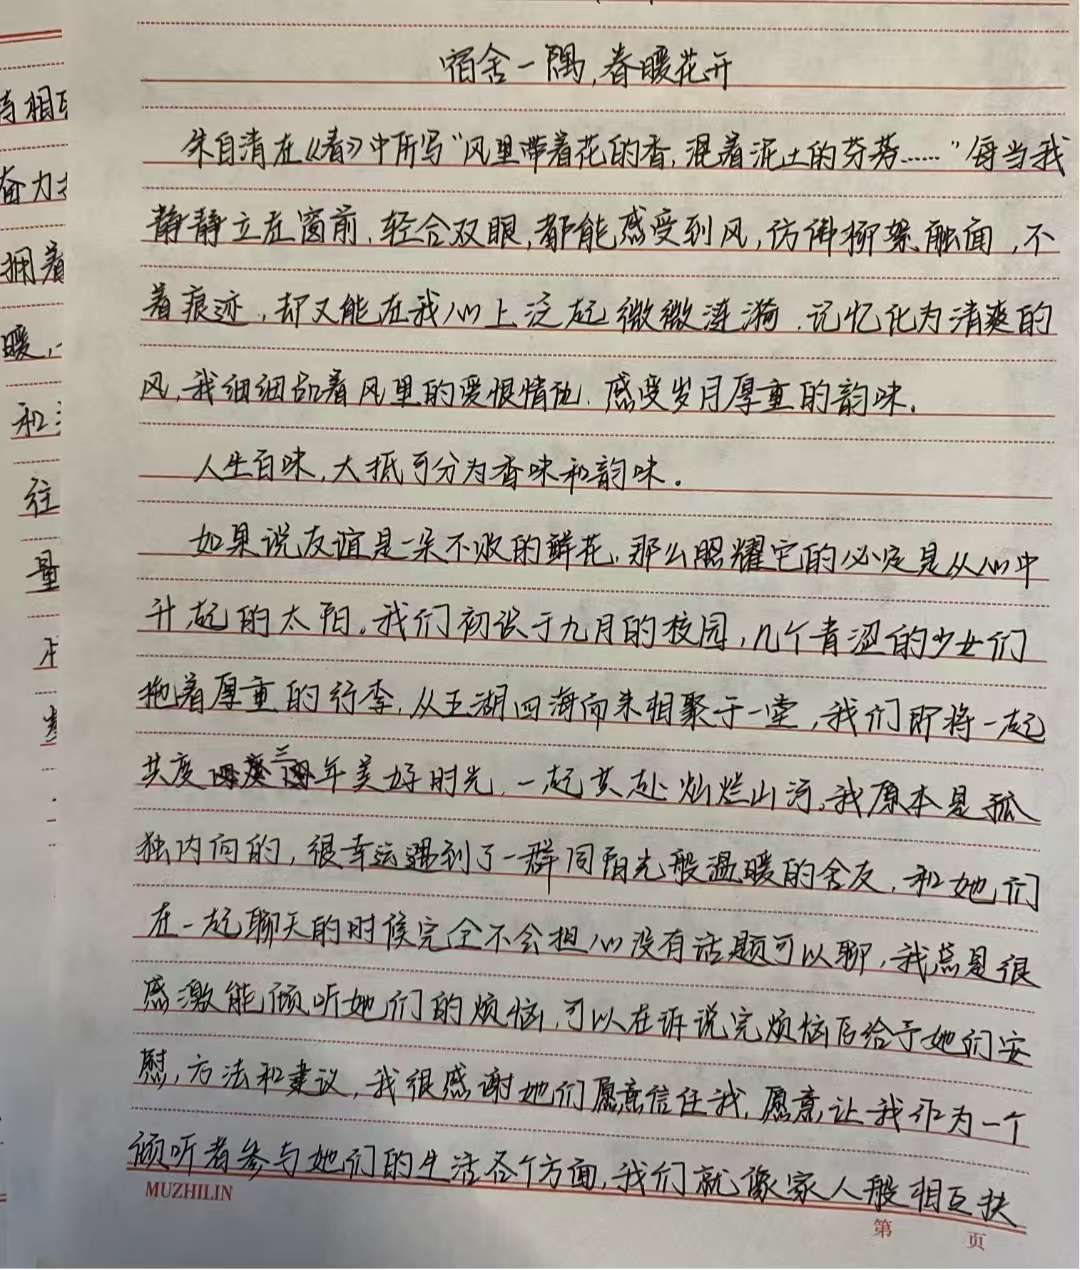 宿舍一隅,春暖花开
朱自清在《春》中所写“风里带着花的香,混着泥土的芬芳……”每当我
静静立在窗前、轻合双眼,都能感受到风,仿佛柳絮触面,不
着痕迹,却又能在我心上泛起微微涟漪.记忆化为清爽的
风,我细细品着风里的爱恨情仇.感受岁月厚重的韵味.
人生百味,大抵可分为香味和韵味。
如果说友谊是一朵不败的鲜花,那么照耀它的必定是从心中
升起的太阳。我们初识于九月的校园,几个青涩的少女们
拖着厚重的行李,从五湖四海而来相聚于一堂,我们即将一起
共度三年美好时光,一起共赴灿烂山河,我原本是孤
独内向的,很幸运遇到了一群同阳光般温暖的舍友,和她们
在一起聊天的时候完全不会担心没有话题可以聊,我总是很
感激能倾听她们的烦恼,可以在诉说完烦恼后给予她们安
慰,方法和建议,我很感谢她们愿意信任我,愿意让我作为一个
倾听者参与她们的生活各个方面,我们就像家人般相互扶
MUZHILIN
第 页
相
奋力
拥着
暖,
和
往
量